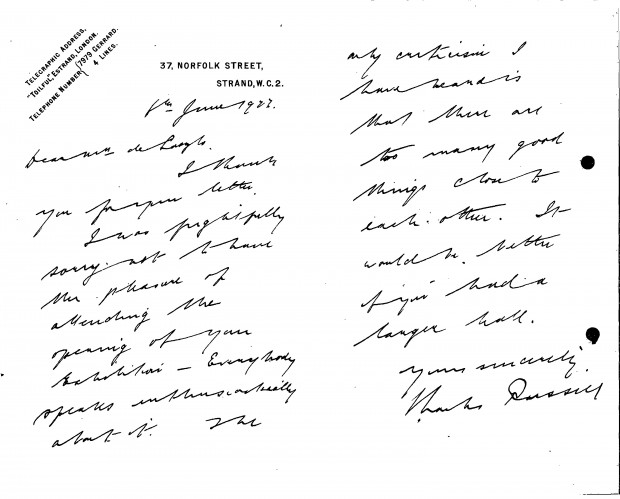 TELEGRAPHIC ADDRESS,
"TOILFUL", ESTRAND, LONDON.
TELEPHONE NUMBER { 7979 GERRARD.
4 LINES.
37, NORFOLK STREET,
STRAND, W.C.2.
8th June 1922.
Dear Mrs de
I thank
you for your letter.
I was frightfully
sorry not to have
the pleasure of
attending the
opening of your
Exhibition – Everybody
speaks enthusiastically
about it. The
only criticism I
have heard is
that there are
too many good
things close to
each other. It
would be better
if you had a
larger hall.
Yours sincerely
Charles Russell